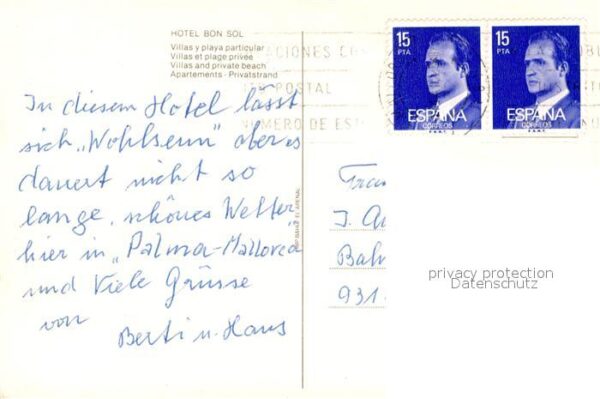 HOTEL BON SOL
Villas y playa particular
Villas et plage privée
Villas and private beach
Apartements - Privatstrand
In diesem Hotel lässt
sich „Wohlsein" aber es
dauert nicht so
lange, schönes Wetter
hier in „Palma-Mallorca
und Viele Grüsse
von
Berti u. Haus
15
PTA
ESPAÑA
CORREOS
15
PTA
ESPAÑA
CORREOS
POSTAL
NUMERO DE
J.
Bah
931
privacy protection
Datenschutz